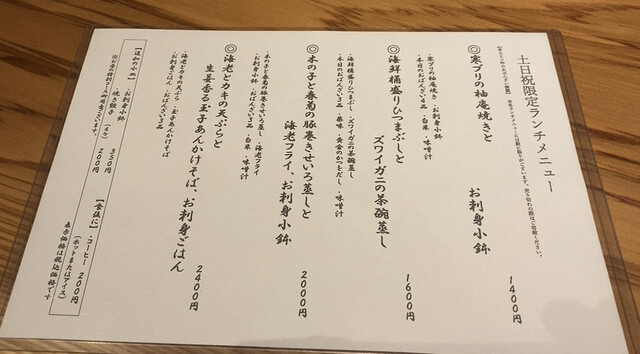 土日祝限定ランチメニュー
◎寒ブリの柚庵焼きと
お刺身小鉢
1400円
・寒ブリの柚庵焼き・お刺身小鉢
・本日のおばんざい4品 ・白米・味噌汁
◎海鮮桶盛りひつまぶしと
ズワイガニの茶碗蒸し
1600円
・海鮮桶盛りひつまぶし・ズワイガニの茶碗蒸し
・本日のおばんざい3品 ・薬味・黄金のかつをだし・味噌汁
◎木の子と春菊の豚巻きせいろ蒸しと
海老フライ、お刺身小鉢
2000円
・木の子と春菊の豚巻きせいろ蒸し・海老フライ
・お刺身小鉢 ・おばんざい3品 ・白米・味噌汁
◎海老とカキの天ぷらと
生姜香る玉子あんかけそば、お刺身ごはん
2400円
・海老とカキの天ぷら ・玉子あんかけそば
・お刺身ごはん ・おばんざい3品
【追加の小皿】
・お刺身小鉢 350円
・焼き餃子(4ケ) 200円
【食後に】
・コーヒー 200円
(ホットまたはアイス)
表示価格は税込価格です